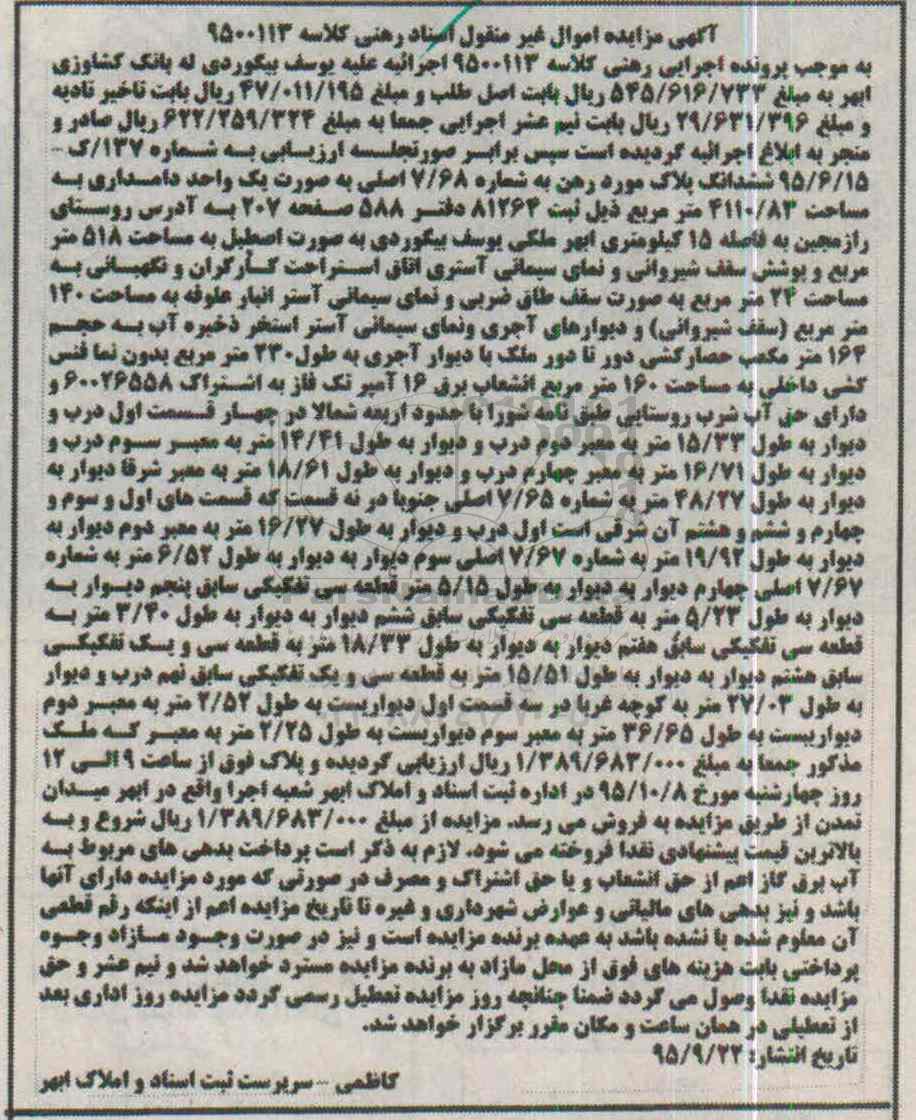 آگهی مزایده اموال غیر منقول اسناد رهنی کلاسه ۹۵۰۰۱۱۳
به موجب پرونده اجرایی رهنی کلاسه ۹۵۰۰۱۱۳ اجرائیه علیه یوسف بیگوردی له بانک کشاورزی
ابهر به مبلغ ۵۴۵/۶۱۶/۷۳۳ ریال بابت اصل طلب و مبلغ ۴۷/۰۱۱/۱۹۵ ریال بابت تاخیر تادیه
و مبلغ ۲۹/۶۳۱/۳۹۶ ریال بابت نیم عشر اجرایی جمعا به مبلغ ۶۲۲/۲۵۹/۳۲۴ ریال صادر و
منجر به ابلاغ اجرائیه گردیده است سپس برابر صورتجلسه ارزیابی به شماره ۱۳۷/ک –
۹۵/۶/۱۵ ششدانگ پلاک مورد رهن به شماره ۷/۶۸ اصلی به صورت یک واحد دامداری به
مساحت ۴۱۱۰/۸۳ متر مربع ذیل ثبت ۸۱۲۶۴ دفتر ۵۸۸ صفحه ۲۰۷ به آدرس روستای
رازمجین به فاصله ۱۵ کیلومتری ابهر ملکی یوسف بیگوردی به صورت اصطبل به مساحت ۵۱۸ متر
مربع و پوشش سقف شیروانی و نمای سیمانی آستری اتاق استراحت کارگران و نگهبانی به
مساحت ۲۴ متر مربع به صورت سقف طاق ضربی و نمای سیمانی آستر انبار علوفه به مساحت ۱۴۰
متر مربع (سقف شیروانی) و دیوارهای آجری ونمای سیمانی آستر استخر ذخیره آب به حجم
۱۶۴ متر مکعب حصارکشی دور تا دور ملک با دیوار آجری به طول۲۳۰ متر مربع بدون نما فنس
کشی داخلی به مساحت ۱۶۰ متر مربع انشعاب برق ۱۶ آمپر تک فاز به اشتراک ۶۰۰۲۶۵۵۸ و
دارای حق آب شرب روستایی طبق نامه شورا با حدود اربعه شمالا در چهار قسمت اول درب و
دیوار به طول ۱۵/۳۳ متر به معبر دوم درب و دیوار به طول ۱۴/۴۱ متر به معبر سوم درب و
دیوار به طول ۱۶/۷۱ متر به معبر چهارم درب و دیوار به طول ۱۸/۶۱ متر به معبر شرقا دیوار به
دیوار به طول ۴۸/۲۷ متر به شماره ۷/۶۵ اصلی جنوبا در نه قسمت که قسمت های اول و سوم و
چهارم و ششم و هشتم آن شرقی است اول درب و دیوار به طول ۱۶/۲۷ متر به معبر دوم دیوار به
دیوار به طول ۱۹/۹۲ متر به شماره ۷/۶۷ اصلی سوم دیوار به دیوار به طول ۶/۵۲ متر به شماره
۷/۶۷ اصلی چهارم دیوار به دیوار به طول ۵/۱۵ متر قطعه سی تفکیکی سابق پنجم دیوار به
دیوار به طول ۵/۲۳ متر به قطعه سی تفکیکی سابق ششم دیوار به دیوار به طول ۳/۴۰ متر به
قطعه سی تفکیکی سابق هفتم دیوار به دیوار به طول ۱۸/۳۳ متر به قطعه سی و یک تفکیکی
سابق هشتم دیوار به دیوار به طول ۱۵/۵۱ متر به قطعه سی و یک تفکیکی سابق نهم درب و دیوار
به طول ۲۷/۰۳ متر به کوچه غربا در سه قسمت اول دیواریست به طول ۲/۵۲ متر به معبر دوم
دیواریست به طول ۳۶/۶۵ متر به معبر سوم دیواریست به طول ۲/۲۵ متر به معبر که ملک
مذکور جمعا به مبلغ ۱/۳۸۹/۶۸۳/۰۰۰ ریال ارزیابی گردیده و پلاک فوق از ساعت ۹ الی ۱۲
روز چهارشنبه مورخ ۹۵/۱۰/۸ در اداره ثبت اسناد و املاک ابهر شعبه اجرا واقع در ابهر میدان
تمدن از طریق مزایده به فروش می رسد. مزایده از مبلغ ۱/۳۸۹/۶۸۳/۰۰۰ ریال شروع و به
بالاترین قیمت پیشنهادی نقدا فروخته می شود. لازم به ذکر است پرداخت بدهی های مربوط به
آب برق گاز اعم از حق انشعاب و یا حق اشتراک و مصرف در صورتی که مورد مزایده دارای آنها
باشد و نیز بدهی های مالیاتی و عوارض شهرداری و غیره تا تاریخ مزایده اعم از اینکه رقم قطعی
آن معلوم شده یا نشده باشد به عهده برنده مزایده است و نیز در صورت وجود مازاد وجوه
پرداختی بابت هزینه های فوق از محل مازاد به برنده مزایده مسترد خواهد شد و نیم عشر و حق
مزایده نقدا وصول می گردد ضمنا چنانچه روز مزایده تعطیل رسمی گردد مزایده روز اداری بعد
از تعطیلی در همان ساعت و مکان مقرر برگزار خواهد شد.
تاریخ انتشار: ۹۵/۹/۲۲
کاظمی – سرپرست ثبت اسناد و املاک ابهر